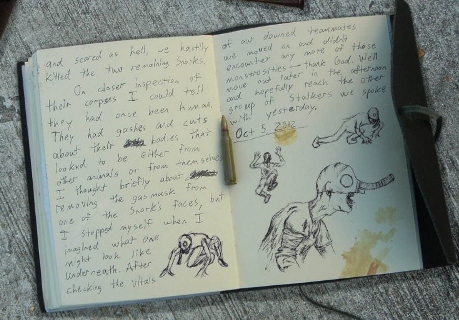 and scared as hell, we hastily
killed the two remaining Snorks.
On closer inspection of
their corpses I could tell
they had once been human.
They had gashes and cuts
about their bodies that
looked to be either from
other animals or from themselves
I thought briefly about
removing the gasmask from
one of the Snork's faces, but
I stopped myself when I
imagined what one
might look like
underneath. After
checking the vitals
of our downed teammates
we moved on and didn't
encounter any more of those
monstrosities - thank God. We'll
move out later in the afternoon
and hopefully reach the other
group of Stalkers we spoke
with yesterday.
Oct 5 2012